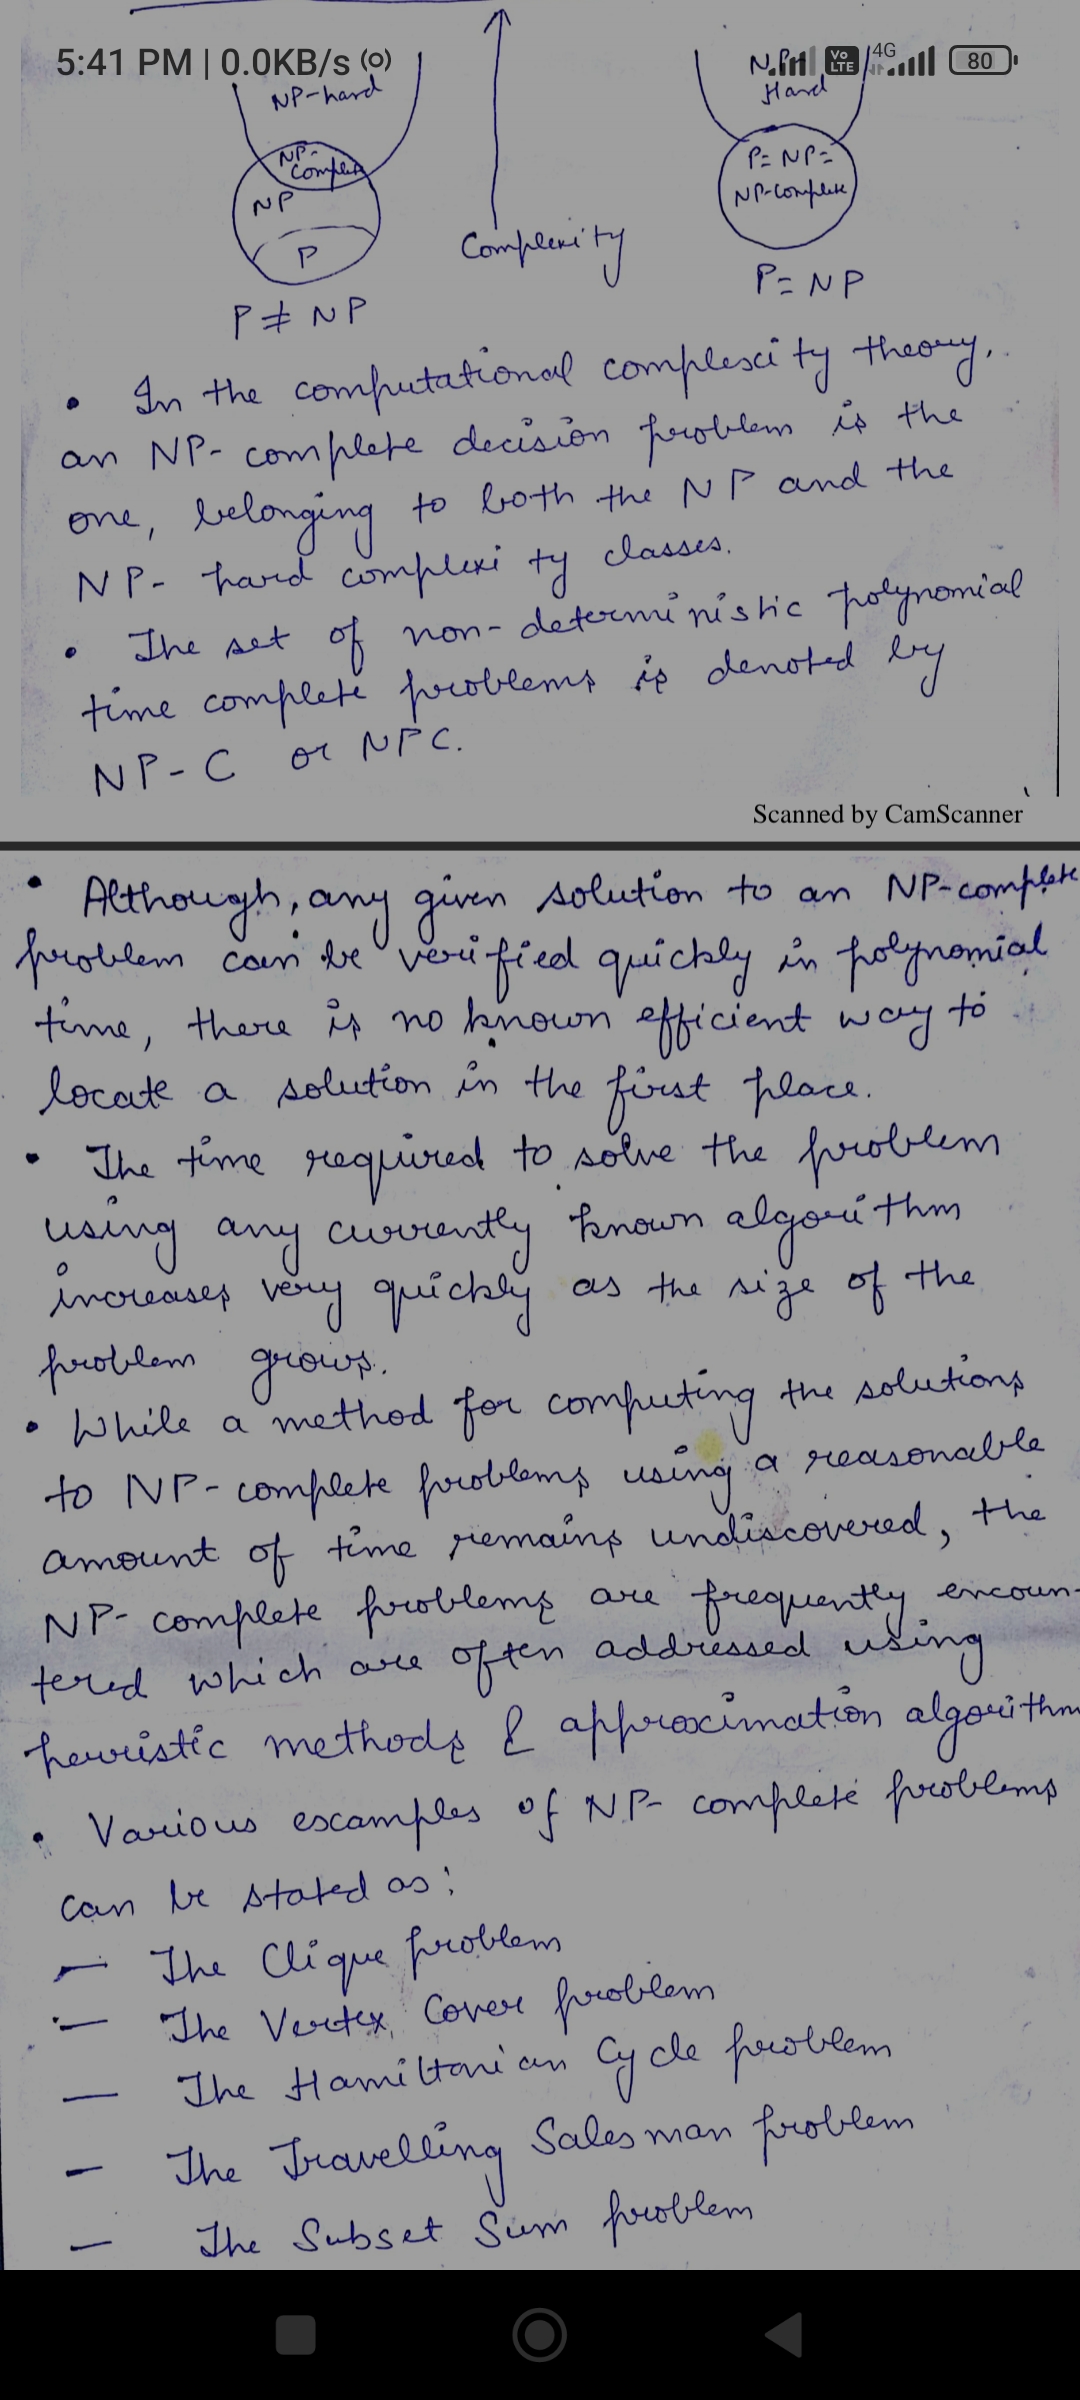 5:41 PM | 0.0KB/s
Vo LTE 4G 80
NP-hard
NP-
Hard
NP-
Complete
NP
P
P ≠ NP
Complexity
P= NP=
NP-complete
P= NP
• In the computational complexity theory,
an NP- complete decision problem is the
one, belonging to both the NP and the
NP- hard complexity classes.
• The set of non-deterministic polynomial
time complete problems is denoted by
NP-C or NPC.
Scanned by CamScanner
• Although, any given solution to an NP-complete
problem can be verified quickly in polynomial
time, there is no known efficient way to
locate a solution in the first place.
• The time required to solve the problem
using any currently known algorithm
increases very quickly as the size of the
problem grows.
• While a method for computing the solutions
to NP-complete problems using a reasonable
amount of time remains undiscovered, the
NP- complete problems are frequently encoun-
tered which are often addressed using
heuristic methods & approximation algorithm
• Various examples of NP- complete problems
can be stated as:
— The Clique problem
— The Vertex Cover problem
— The Hamiltonian Cycle problem
— The Travelling Salesman problem
— The Subset Sum problem